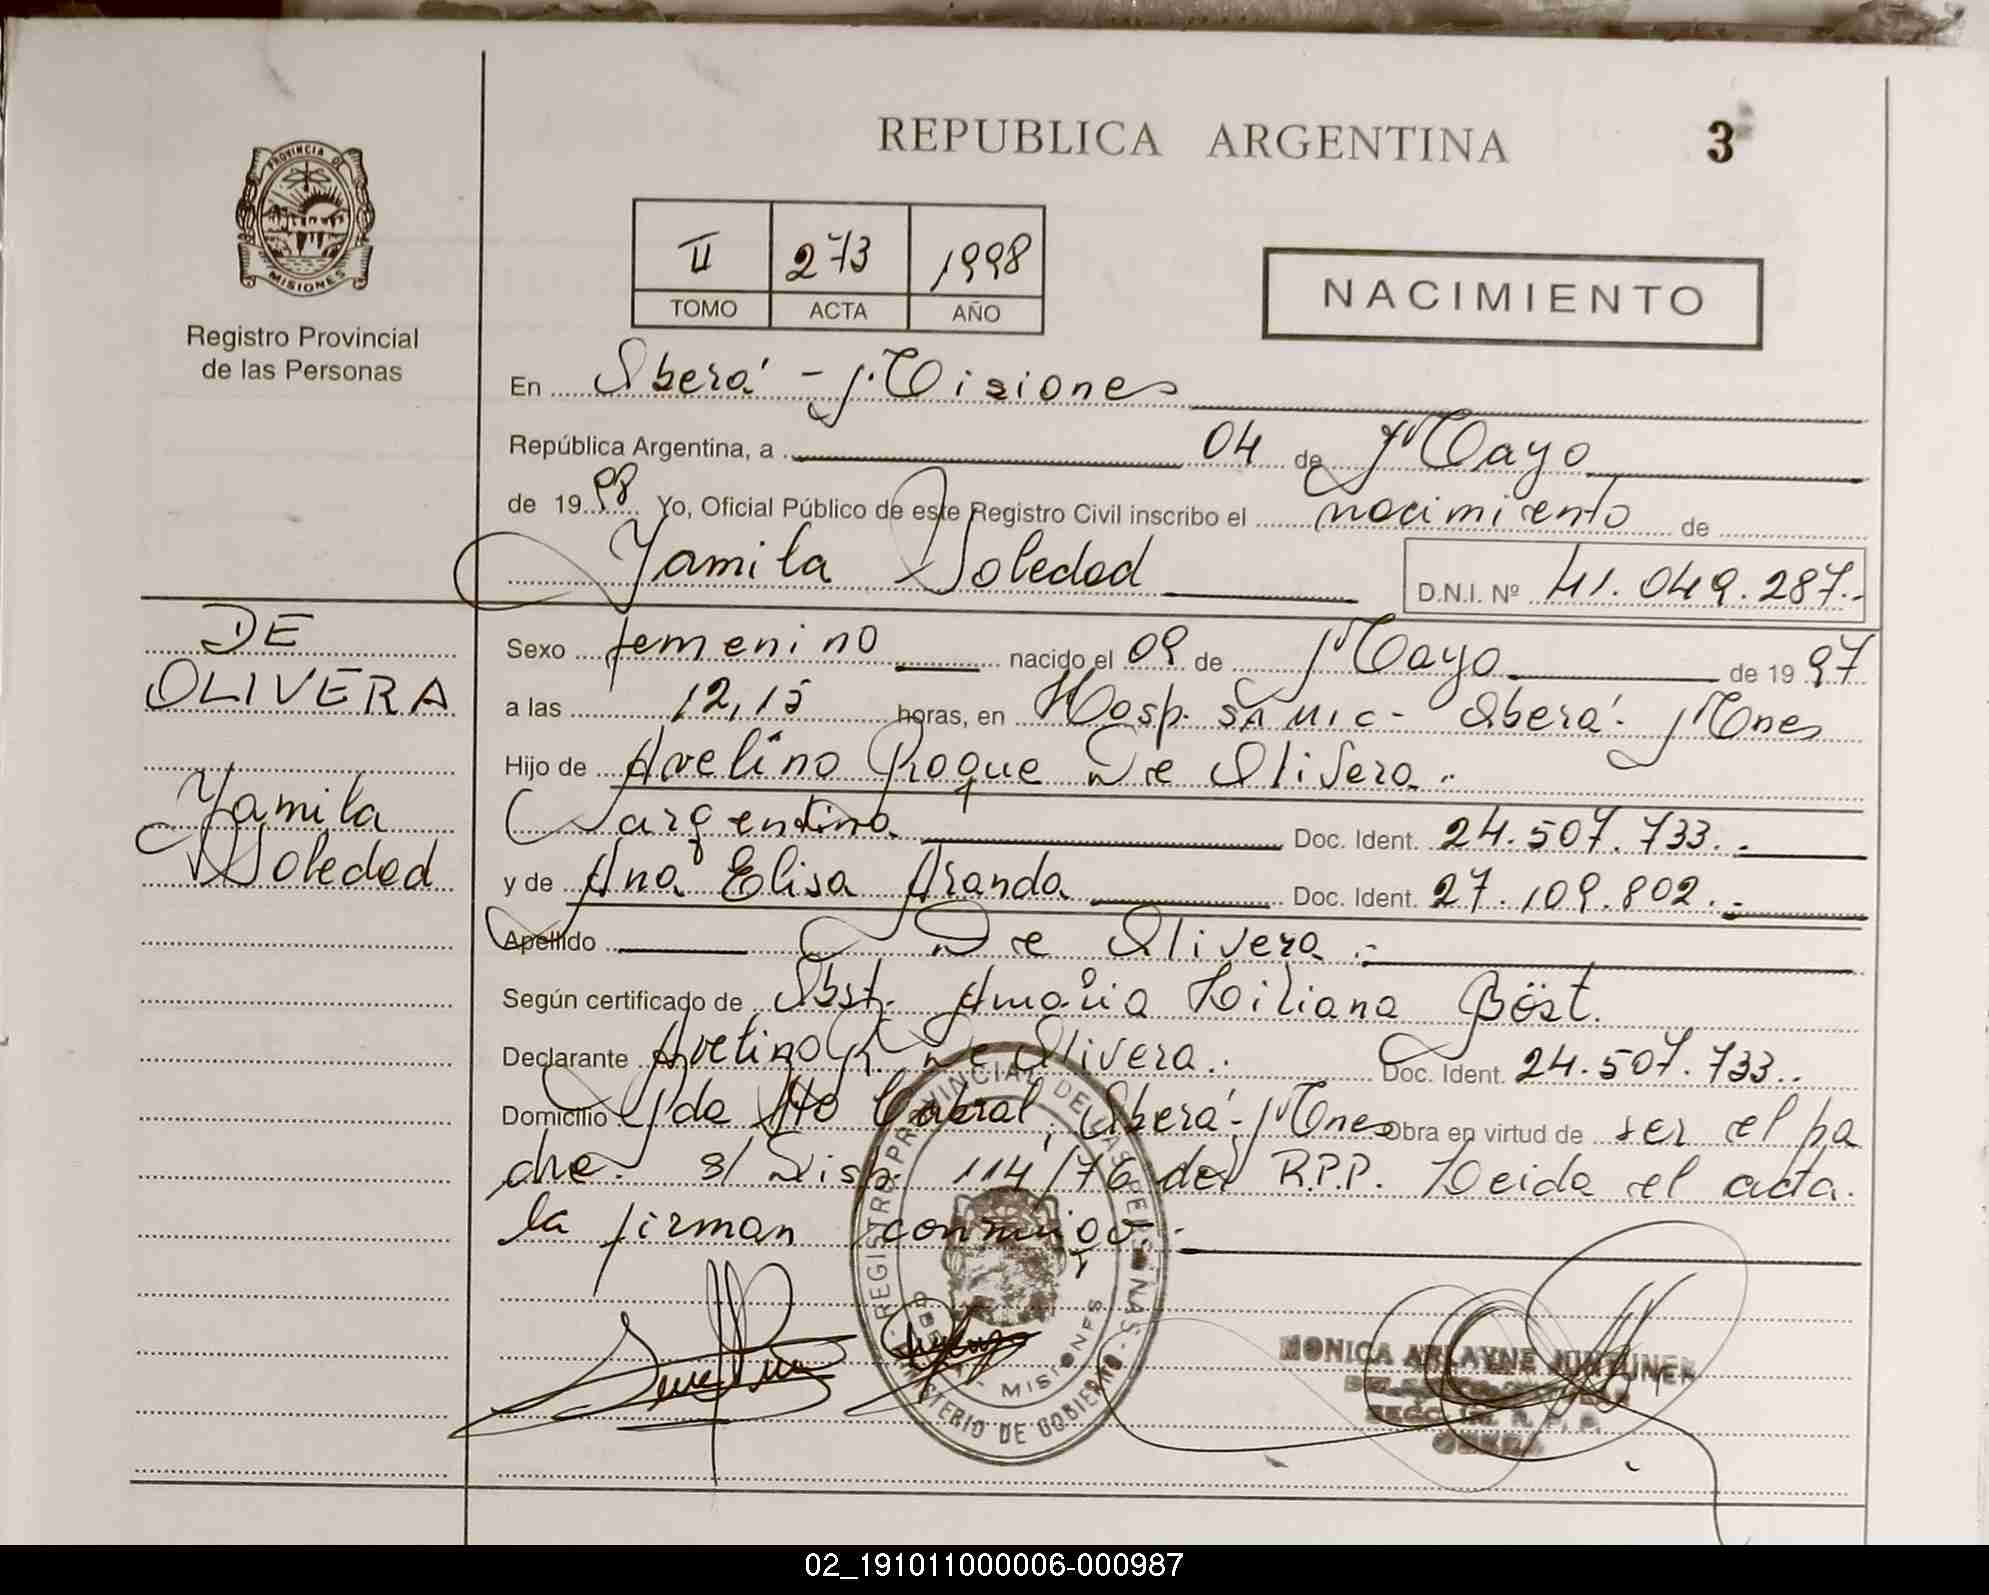 REPUBLICA ARGENTINA
3
PROVINCIA DE
MISIONES
Registro Provincial
de las Personas
II 273 1998
TOMO ACTA AÑO
NACIMIENTO
En Oberá - Misiones
República Argentina, a 04 de Mayo
de 1998 Yo, Oficial Público de este Registro Civil inscribo el nacimiento de
Yamila Soledad D.N.I. Nº 41.049.287.-
DE
OLIVERA
Yamila
Soledad
Sexo femenino nacido el 09 de Mayo de 1997
a las 12,15 horas, en Hosp. SAMIC - Oberá - Mnes
Hijo de Avelino Roque De Olivera.
argentino. Doc. Ident. 24.507.733.-
y de Ana Elisa Aranda Doc. Ident. 27.109.802.-
Apellido De Olivera.-
Según certificado de Obst. Amalia Liliana Böst.
Declarante Avelino R. De Olivera. Doc. Ident. 24.507.733..
Domicilio Pda Cabral, Oberá - Mnes Obra en virtud de ser el pa
dre. s/ Disp. 114/76 del R.P.P. Leida el acta.
la firman conmigo.-
REGISTRO PROVINCIAL DE LAS PERSONAS -
MISIONES
MINISTERIO DE GOBIERNO
MONICA
02_191011000006-000987